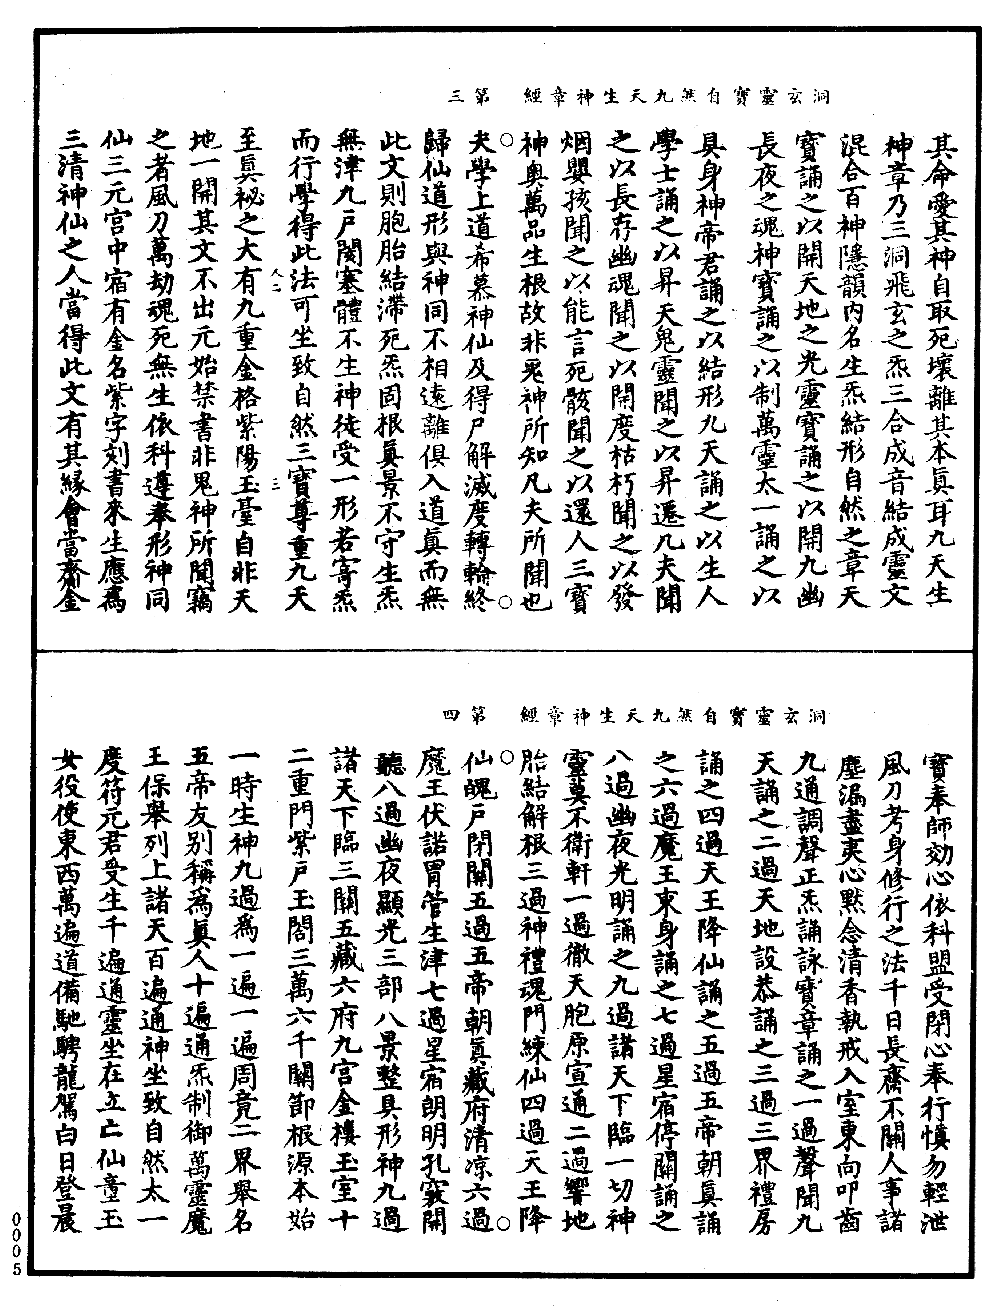 洞玄靈寶自然九天生神章經　第三
其命愛其神自取死壞離其本眞耳九天生
神章乃三洞飛玄之炁三合成音結成靈文
混合百神隱韻内名生炁結形自然之章天
寶誦之以開天地之光靈寶誦之以開九幽
長夜之魂神寶誦之以制萬靈太一誦之以
具身神帝君誦之以結形九天誦之以生人
學士誦之以昇天鬼靈聞之以昇遷凡夫聞
之以長存幽魂聞之以開度枯朽聞之以發
烟嬰孩聞之以能言死骸聞之以還人三寶
神奥萬品生根故非鬼神所知凡夫所聞也
夫學上道希慕神仙及得尸解滅度轉輪終
歸仙道形與神同不相遠離俱入道眞而無
此文則胞胎結滯死炁固根眞景不守生炁
無津九戸閡塞體不生神徒受一形若寄炁
而行學得此法可坐致自然三寶尊重九天
人二　三
至眞祕之大有九重金格紫陽玉臺自非天
地一開其文不出元始禁書非鬼神所聞竊
之者風刀萬劫魂死無生依科遵奉形神同
仙三元宫中宿有金名紫字刻書來生應爲
三清神仙之人當得此文有其緣會當齋金
洞玄靈寶自然九天生神章經　第四
寶奉師効心依科盟受閉心奉行慎勿輕泄
風刀考身修行之法千日長齋不關人事諸
塵漏盡夷心默念清香執戒入室東向叩齒
九通調聲正炁誦詠寶章誦之一過聲聞九
天誦之二過天地設恭誦之三過三界禮房
誦之四過天王降仙誦之五過五帝朝眞誦
之六過魔王束身誦之七過星宿停關誦之
八過幽夜光明誦之九過諸天下臨一切神
靈莫不衛軒一過徹天胞原宣通二過響地
胎結解根三過神禮魂門練仙四過天王降
仙魄戸閉關五過五帝朝眞藏府清凉六過
魔王伏諾胃管生津七過星宿朗明孔竅開
聽八過幽夜顯光三部八景整具形神九過
諸天下臨三關五藏六府九宫金樓玉室十
二重門紫戸玉閤三萬六千關節根源本始
一時生神九過爲一遍一遍周竟三界舉名
五帝友别稱爲眞人十遍通炁制御萬靈魔
王保舉列上諸天百遍通神坐致自然太一
度符元君受生千遍通靈坐在立亡仙童玉
女役使東西萬遍道備馳騁龍駕白日登晨
00005